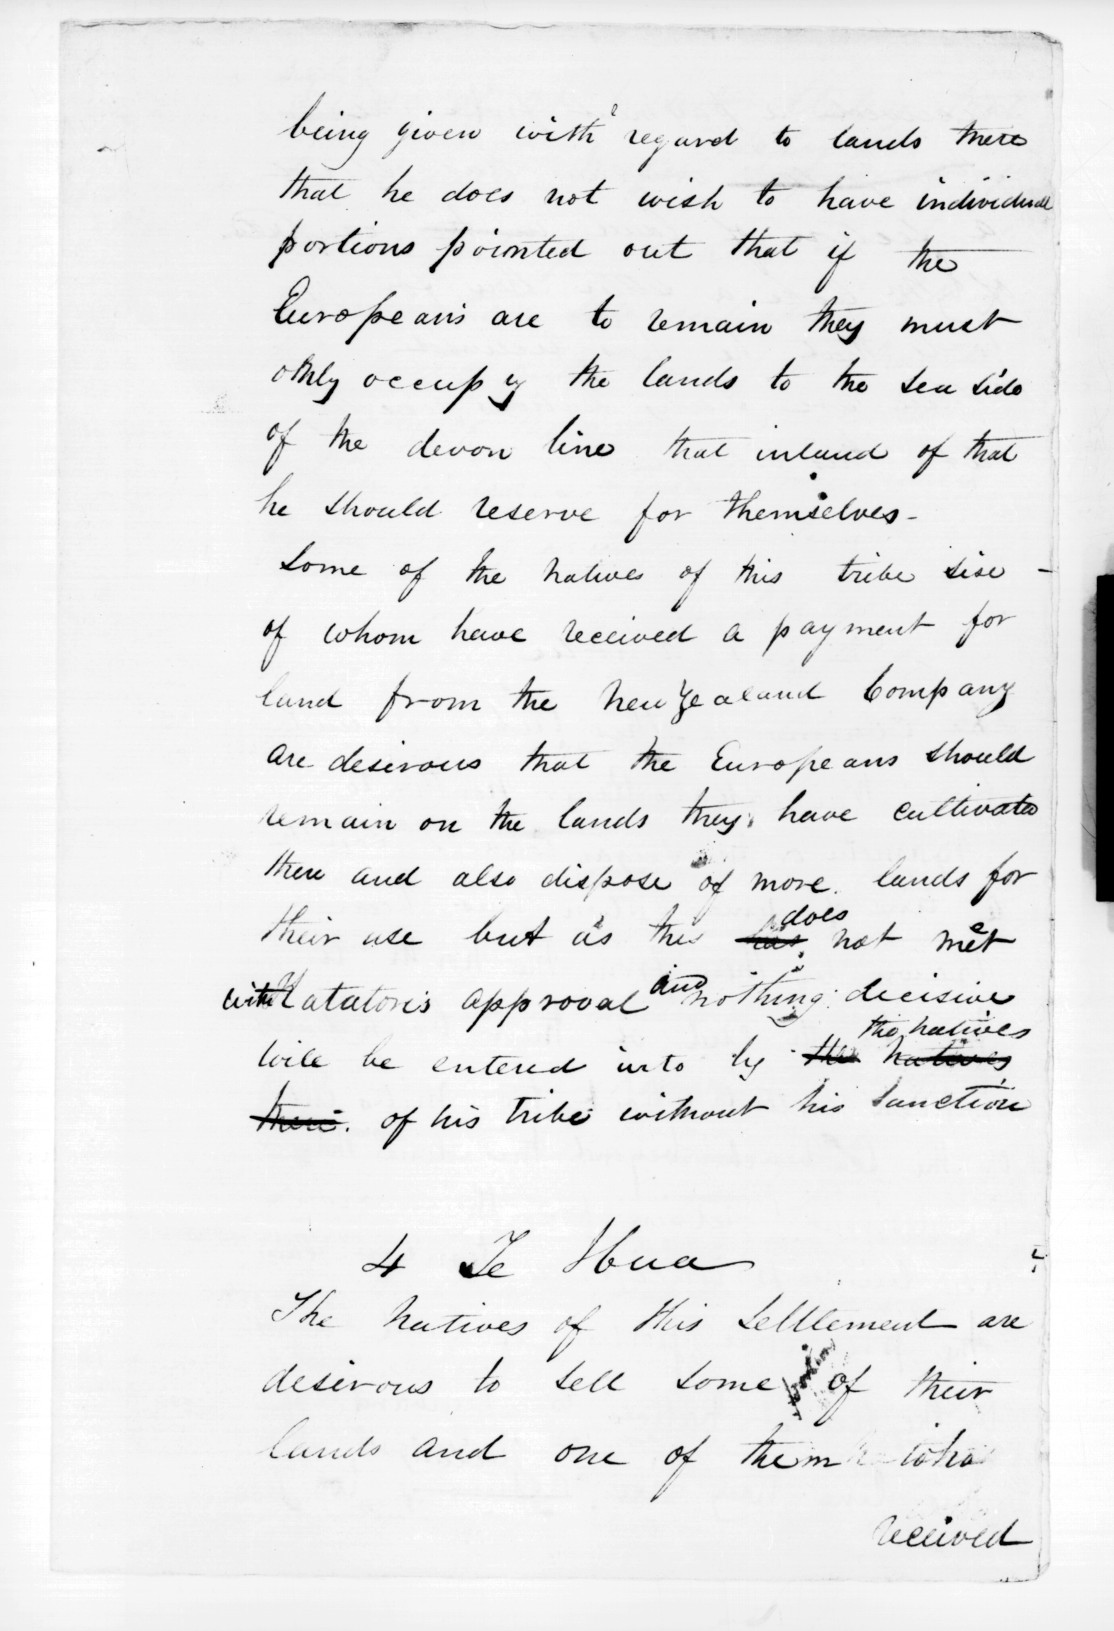 being given with regard to lands there
that he does not wish to have individual
portions pointed out that if the
Europeans are to remain they must
only occupy the lands to the sea side
of the devon line that inland of that
he should reserve for themselves -
Some of the natives of this tribe
of whom have received a payment for
land from the New Zealand Company
are desirous that the Europeans should
remain on the lands they have cultivated
there and also dispose of more lands for
their use but as this has does not meet
with Katatore's approval and nothing decisive
will be entered into by the natives the natives
there. of his tribe without his sanction
4 Te Hua
The natives of this Settlement are
desirous to sell some of their
lands and one of them who
received